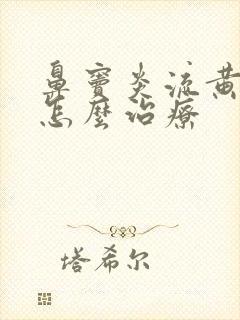 鼻窦炎流黄
怎麼治療
塔希尔